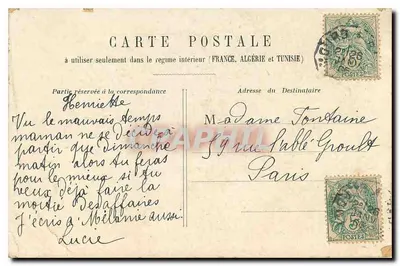 CARTE POSTALE
à utiliser seulement dans le régime intérieur (FRANCE, ALGÉRIE et TUNISIE)
Partie réservée à la correspondance
Adresse du Destinataire
Henriette
Vu le mauvais temps
maman ne se décidera
partir que dimanche
matin alors tu feras
pour le mieux si tu
veux déjà faire la
moitié des affaires
J'écris à Mélanie aussi
Lucie
Madame Fontaine
59 rue l'abbé Groult
Paris